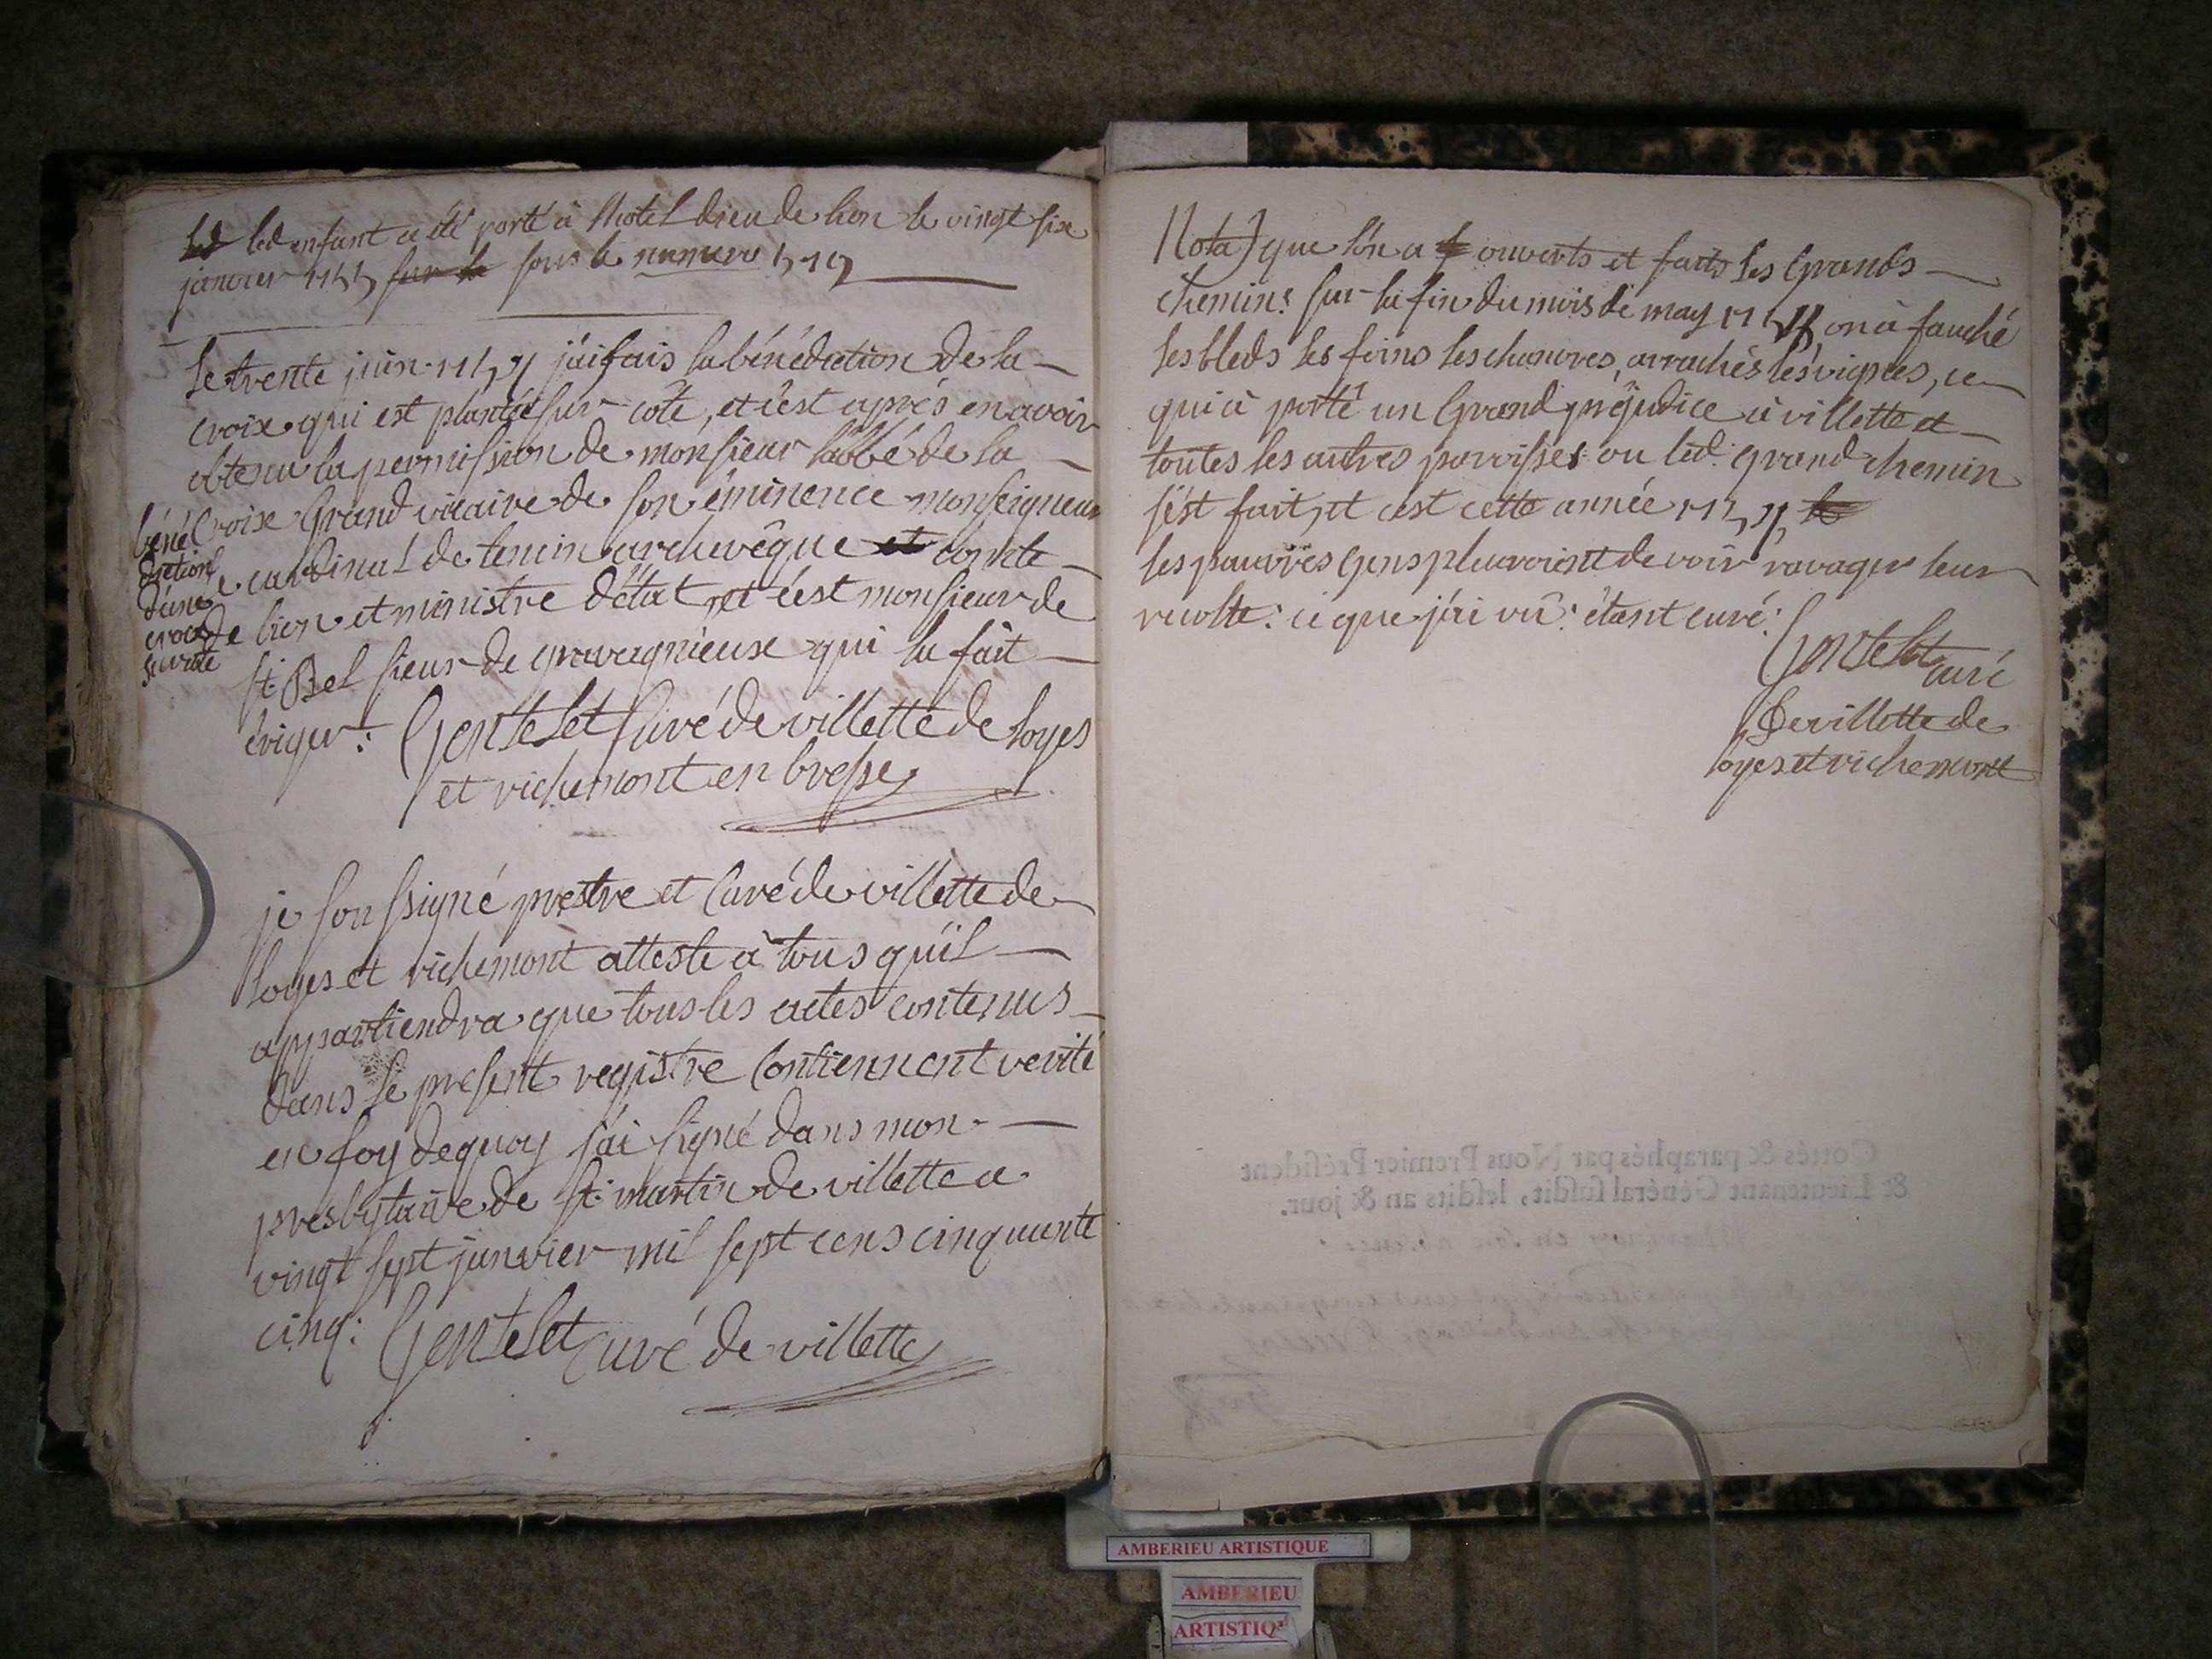 led enfant a été porté à l'hotel dieu de lion le vingt six
janvier 1755 sur la sous le numero
Le trente juin 1754 j'ai fais la bénédiction de la
croix qui est plantée sur côte, et c'est aprés en avoir
obtenu la permission de monsieur l'abbé de la
Croix Grand vicaire de son éminence monseigneur
le cardinal de tencin archevêque et comte
de lion et ministre d'état, et c'est monsieur de
st Bel sieur de gravagnieux qui la fait
eriger: Gentelet Curé de villette de loyes
et richemont en bresse
béné
diction
d'une
croix
sur côte
je soussigné prestre et Curé de villette de
loyes et richemont atteste à tous qu'il
appartiendra que tous les actes contenus
dans le present registre Contiennent verité
en foy de quoy j'ai signé dans mon
presbytaire de st martin de villette a
vingt sept janvier mil sept cens cinquante
cinq: Gentelet Curé de villette
Nota) que l'on a ouverts et faits les Grands
Chemins sur la fin du mois de may 1754 on à fauché
les bleds les foins les chanvres, arrachés les vignes, ce
qui à porté un Grand préjudice à villette et
toutes les autres paroisses ou led. grand chemin
s'est fait, et c'est cette année 1754 le
les pauvres Gens pleuroient de voir ravager leur
recolte: ce que j'ai vû: étant curé:
Gentelet curé
De villette de
loyes et richemont
Cottés & paraphés par Nous Premier Président
& Lieutenant Général susdit, lesdits an & jour.
AMBERIEU ARTISTIQUE
AMBERIEU
ARTISTIQ